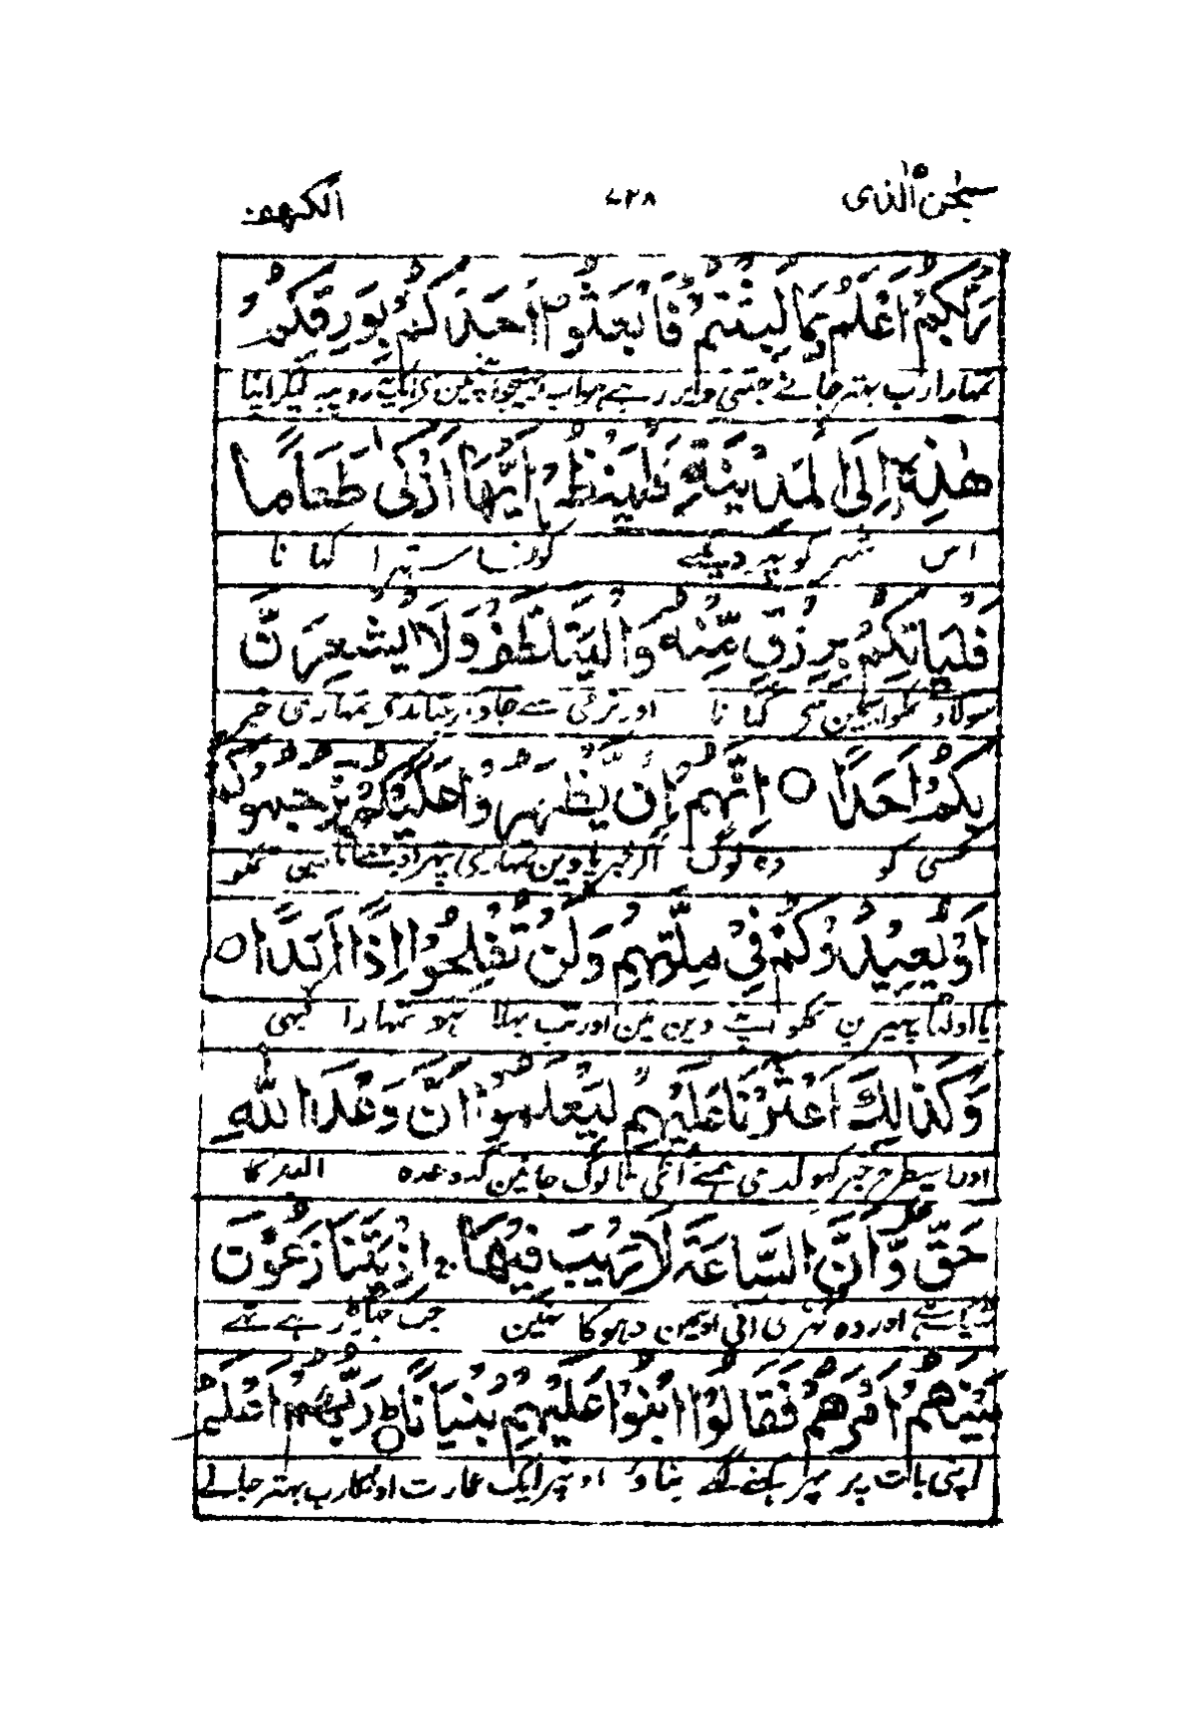 سبحٰن الذی ۱۵ ۷۲۸ الکہف
رَبُّكُمْ اَعْلَمُ بِمَا لَبِثْتُمْ فَابْعَثُوْا اَحَدَكُمْ بِوَرِقِكُمْ
تمہارا رب بہتر جانے جتنی دیر رہے ہو اب بہیجو اپنین سی ایک روپیہ لیکر اپنا
هٰذِهٖ اِلَى الْمَدِيْنَةِ فَلْيَنْظُرْ اَيُّهَا اَزْكٰى طَعَامًا
اس شہر کو پہر دیکہے کونسا ستہرا کہا نا
فَلْيَاْتِكُمْ بِرِزْقٍ مِّنْهُ وَلْيَتَلَطَّفْ وَلَا يُشْعِرَنَّ
سولادے تمکو اسمین سی کہا نا اور نرمی سے جاوے اور جتا ندے تمہاری خبر
بِكُمْ اَحَدًا ○ اِنَّهُمْ اِنْ يَّظْهَرُوْا عَلَيْكُمْ يَرْجُمُوْكُمْ
کسی کو وہ لوگ اگر خبر پاوین تمہاری پہراؤ سی تمکو
اَوْ يُعِيْدُوْكُمْ فِيْ مِلَّتِهِمْ وَلَنْ تُفْلِحُوْا اِذًا اَبَدًا ○
یا اولٹا پہیرین تمکو اپنے دین مین اور تب بہلا نہو تمہارا کبہی
وَكَذٰلِكَ اَعْثَرْنَا عَلَيْهِمْ لِيَعْلَمُوْا اَنَّ وَعْدَ اللّٰهِ
اور اسیطرح خبر کہولدی ہمنے انکی تا لوگ جانین کہ وعدہ اللہ کا
حَقٌّ وَّاَنَّ السَّاعَةَ لَا رَيْبَ فِيْهَا اِذْ يَتَنَازَعُوْنَ
ٹہیک ہے اور وہ گہڑی انی اوسمین دہوکا نہین جب جہگڑ رہے تہے
بَيْنَهُمْ اَمْرَهُمْ فَقَالُوا ابْنُوْا عَلَيْهِمْ بُنْيَانًا ط رَبُّهُمْ اَعْلَمُ
اپنی بات پر پہر کہنے لگے بناؤ اونپر ایک عمارت اونکا رب بہتر جانے